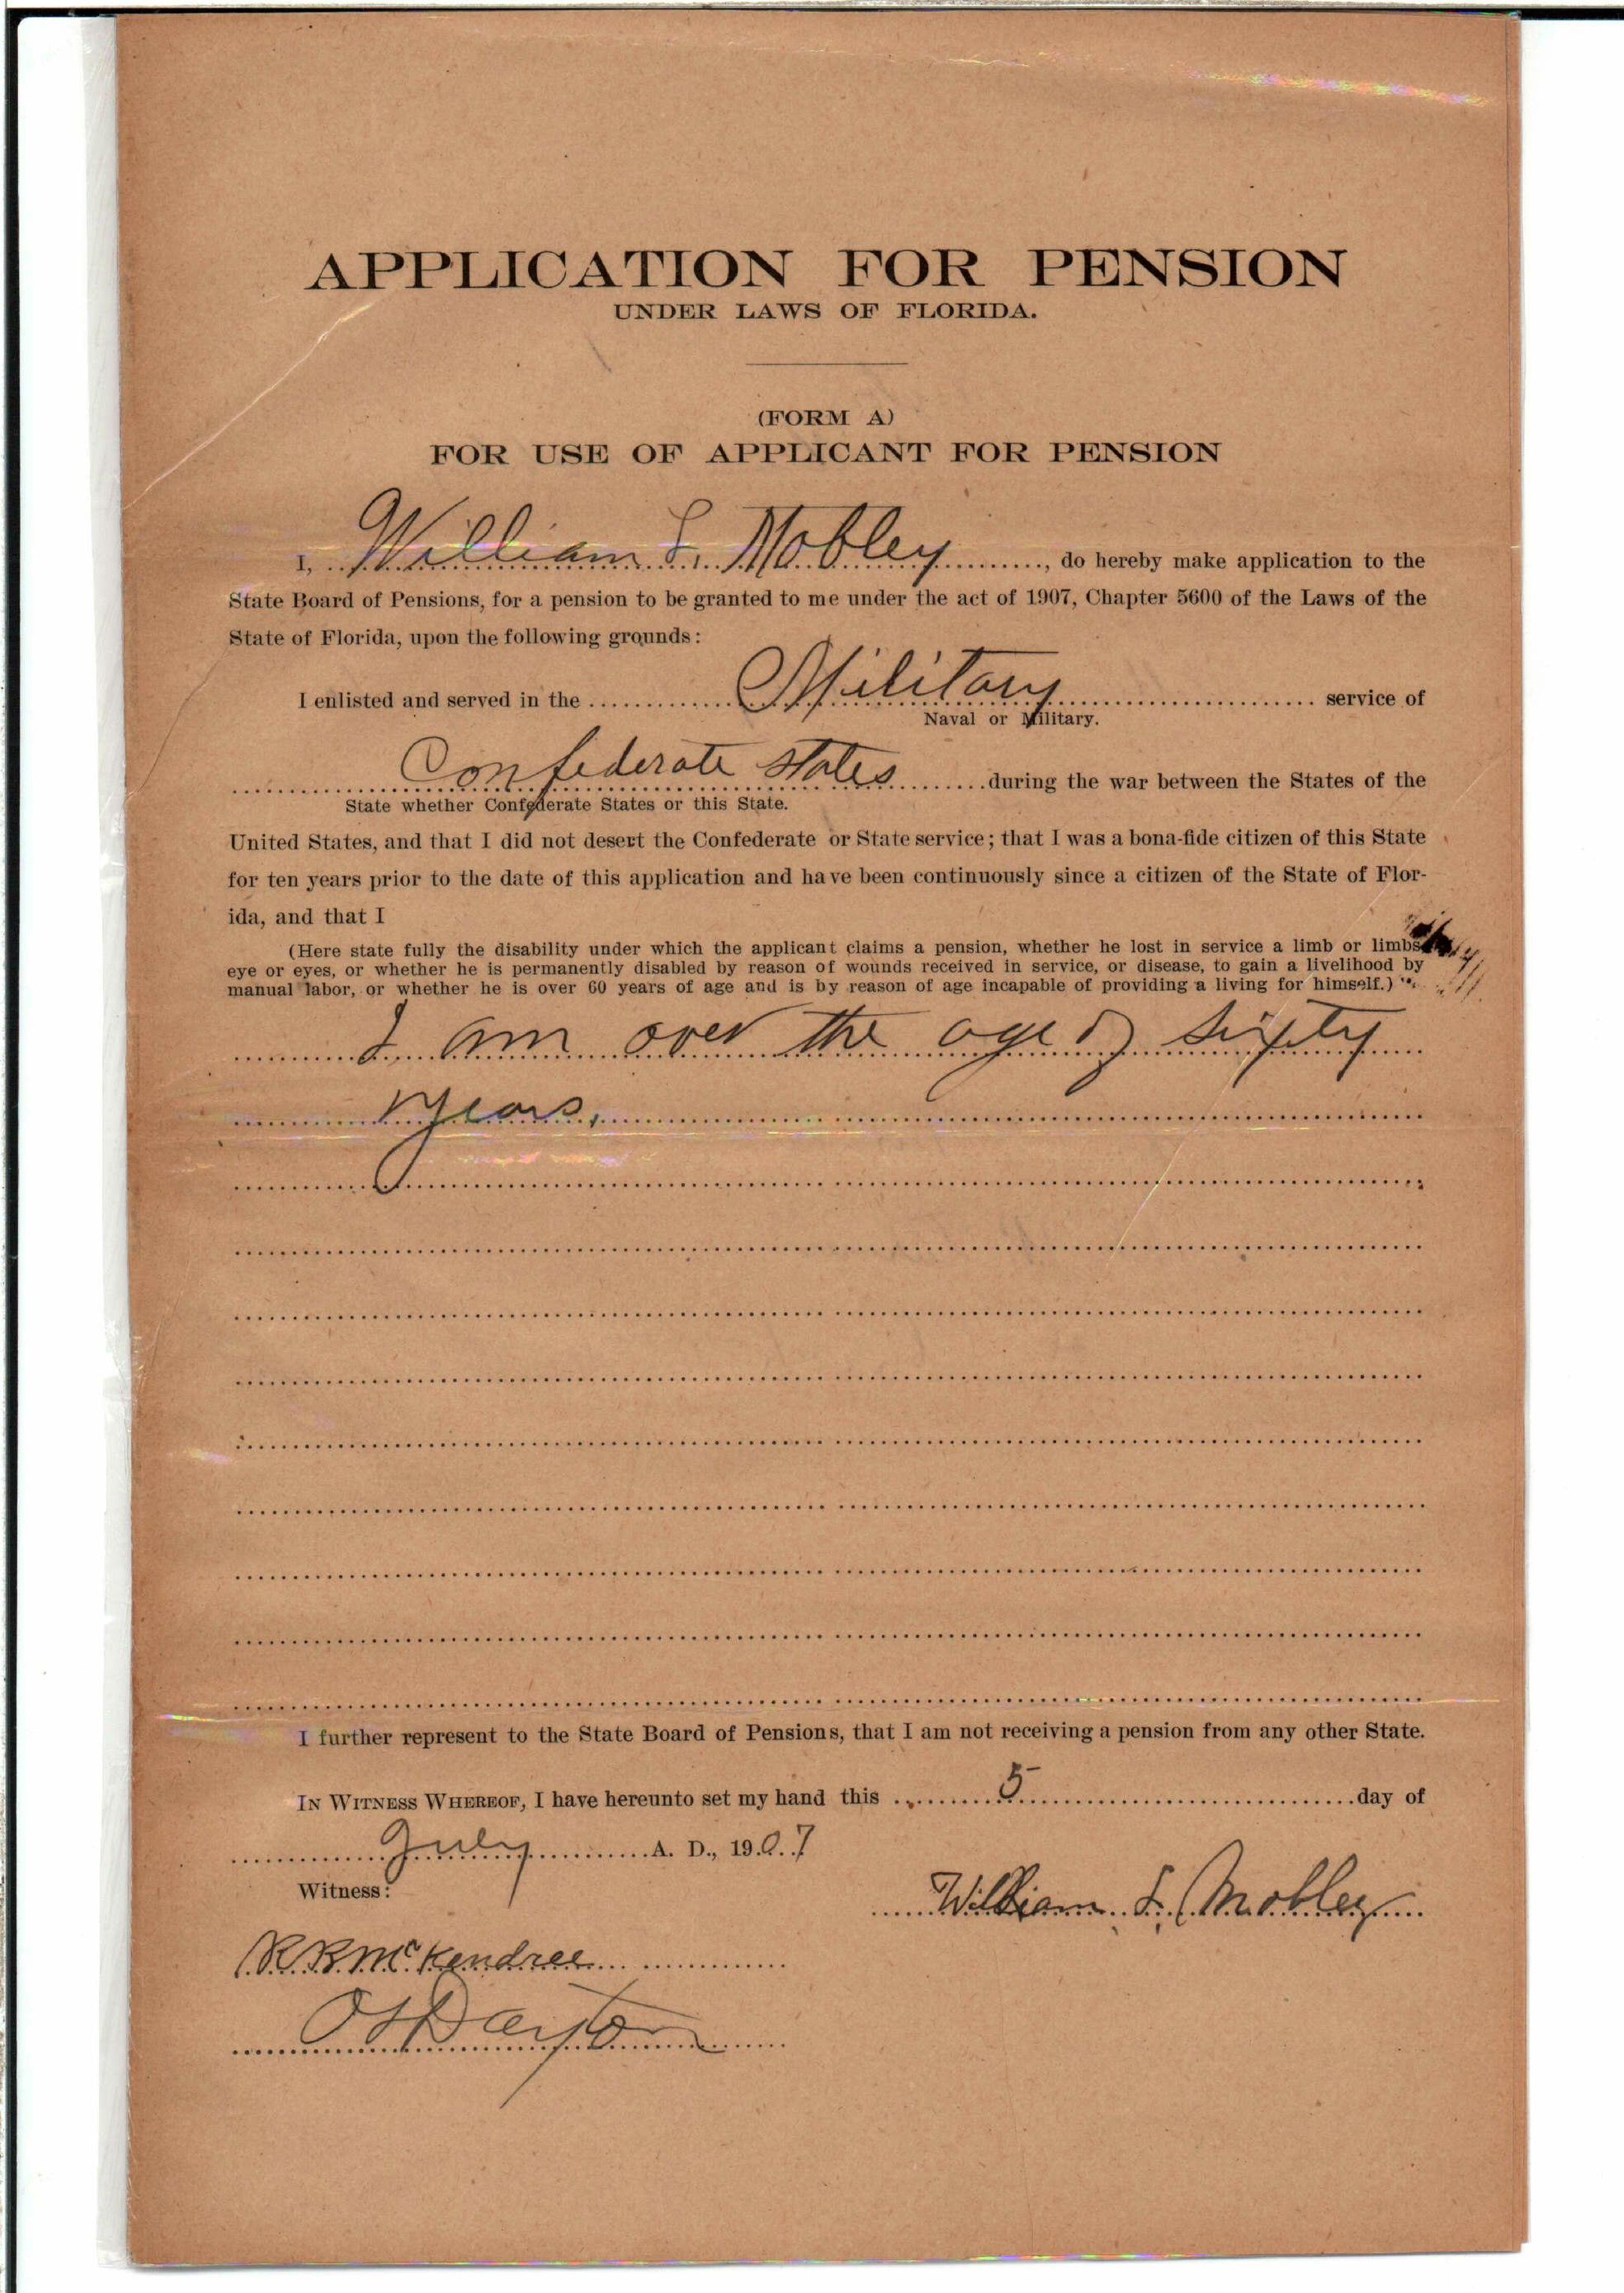 APPLICATION FOR PENSION
UNDER LAWS OF FLORIDA.
(FORM A)
FOR USE OF APPLICANT FOR PENSION
I, William S. Mobley, do hereby make application to the
State Board of Pensions, for a pension to be granted to me under the act of 1907, Chapter 5600 of the Laws of the
State of Florida, upon the following grounds:
I enlisted and served in the Military service of
Naval or Military.
Confederate States during the war between the States of the
State whether Confederate States or this State.
United States, and that I did not desert the Confederate or State service; that I was a bona-fide citizen of this State
for ten years prior to the date of this application and have been continuously since a citizen of the State of Flor-
ida, and that I
(Here state fully the disability under which the applicant claims a pension, whether he lost in service a limb or limbs
eye or eyes, or whether he is permanently disabled by reason of wounds received in service, or disease, to gain a livelihood by
manual labor, or whether he is over 60 years of age and is by reason of age incapable of providing a living for himself.)
I am over the age of sixty
years,
I further represent to the State Board of Pensions, that I am not receiving a pension from any other State.
IN WITNESS WHEREOF, I have hereunto set my hand this 5 day of
July A. D., 1907
Witness:
William S. Mobley
R. R. McKendree